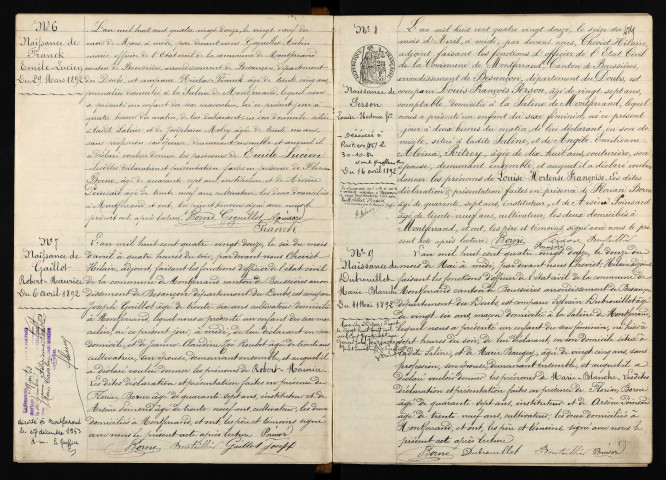 N° 6
Naissance de
Franck
Emile Lucien
Du 29 Mars 1892
L'an mil huit cent quatre vingt douze, le vingt neuf du
mois de Mars, à midi, par devant nous Coquillet Aubin
maire officier de l'état civil de la commune de Montferrand
canton de Boussières, arrondissement de Besançon, département
du Doubs, est comparu Nicolas Franck âgé de trente cinq ans
journalier domicilié à la Saline de Montferrand, lequel nous
a présenté un enfant du sexe masculin, né ce présent jour à
quatre heures du matin, de lui déclarant en son domicile sis à
ladite Saline et de Joséphine âgée de trente ans,
sans profession, son épouse, demeurant ensemble, et auquel il
a déclaré vouloir donner les prénoms de Emile Lucien
Lesdites déclaration et présentation faites en présence de Florian
Borne âgé de quarante sept ans, instituteur et de Arsène
Poinsard âgé de trente neuf ans, cultivateur, les deux domiciliés
à Montferrand et ont, les père et témoins signé avec nous le
présent acte après lecture. Borne Coquillet Poinsard
Franck
N° 7
Naissance de
Gaillot
Robert Maurice
Du 6 avril 1892
L'an mil huit cent quatre vingt douze, le six du mois
d'avril à quatre heures du soir, par devant nous Chevist
Hilaire, adjoint, faisant les fonctions d'officier de l'état civil
de la commune de Montferrand canton de Boussières arron-
dissement de Besançon département du Doubs est comparu
Joseph Gaillot âgé de trente six ans cultivateur domicilié
à Montferrand, lequel nous a présenté un enfant du sexe mas-
culin, né ce présent jour, à midi, de lui déclarant en son
domicile, et de Jeanne Claudine Roulot âgée de trente ans
cultivatrice, son épouse, demeurant ensemble, et auquel il a
déclaré vouloir donner les prénoms de Robert Maurice.
Lesdites déclaration et présentation faites en présence de
Florian Borne âgé de quarante sept ans, instituteur et de
Arsène Poinsard âgé de trente neuf ans, cultivateur, les deux
domiciliés à Montferrand, et ont, les père et témoins signé
avec nous le présent acte après lecture. Poinsard
Borne Gaillot Joseph
décédé à Montferrand
le décembre 1953
N° 8
Naissance de
Person
Louise Hortense fse
Décédée à
Du 16 avril 1892
L'an mil huit cent quatre vingt douze, le seize du
mois d'Avril, à midi, par devant nous, Chevist Hilaire,
adjoint faisant les fonctions d'officier de l'Etat Civil
de la Commune de Montferrand, Canton de Boussières,
arrondissement de Besançon, département du Doubs, est
comparu Louis François Person, âgé de vingt sept ans,
comptable domicilié à la Saline de Montferrand, lequel
nous a présenté un enfant du sexe féminin, né ce présent
jour à deux heures du matin, de lui déclarant, en son do-
micile, sis à ladite Saline, et de Angèle Emilienne
Albina âgée de dix huit ans, couturière, son
épouse, demeurant ensemble, et auquel il a déclaré vouloir
donner les prénoms de Louise Hortense Françoise. Les dites
déclaration et présentation faites en présence de Florian Borne
âgé de quarante sept ans, instituteur, et de Arsène Poinsard
âgé de trente neuf ans, cultivateur, les deux domiciliés à
Montferrand, et ont, les père et témoins signé avec nous le pré-
sent acte après lecture. Borne Person
Poinsard
N° 9
Naissance de
Dubrouillet
Marie Blanche
Du 4 Mai 1892
L'an mil huit cent quatre vingt douze le
mois de Mai à midi par devant nous Chevist Hilaire adjoint
faisant les fonctions d'officier de l'état civil de la commune de
Montferrand canton de Boussières arrondissement de Besançon
département du Doubs est comparu Sylvain Dubrouillet âgé
de vingt six ans, maçon domicilié à la Saline de Montferrand
lequel nous a présenté un enfant du sexe féminin, né hier à
sept heures du soir, de lui déclarant, en son domicile situé à
la dite Saline, et de Marie âgée de vingt cinq ans, sans
profession, son épouse, demeurant ensemble, et auquel il a
déclaré vouloir donner les prénoms de Marie Blanche. Lesdites
déclaration et présentation faites en présence de Florian Borne
âgé de quarante sept ans, instituteur et de Arsène Poinsard
âgé de trente neuf ans, cultivateur, les deux domiciliés à
Montferrand, et ont, les père et témoins signé avec nous le présent
acte après lecture
Borne Dubrouillet Poinsard